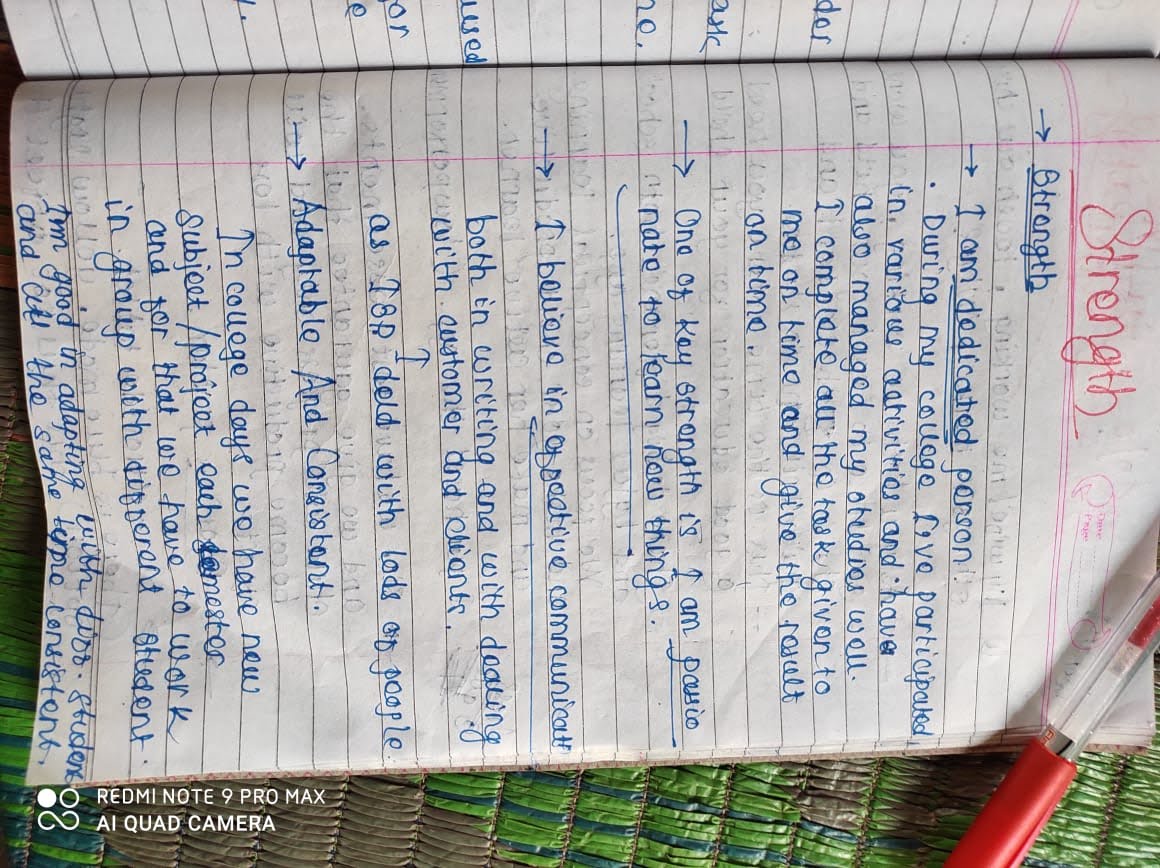 Strength
Date
Page
→ Strength
→ I am dedicated person.
. During my college I,ve participated
in various activities and have
also managed my studies well.
I complete all the task given to
me on time and give the result
on time.
→ One of key strength is I am passio
nate to learn new things.
→ I believe in effective communicati
both in writing and with dealing
with customer and clients.
↑
as I deld with lods of people.
→ Adaptable And Consistent.
In college days we have new
subject/project each semester
and for that we have to work
in group with different student.
Imm good in adapting with diff. student
and at the same time consistent.
der
ask
ne.
used
or
e
y.
REDMI NOTE 9 PRO MAX
AI QUAD CAMERA